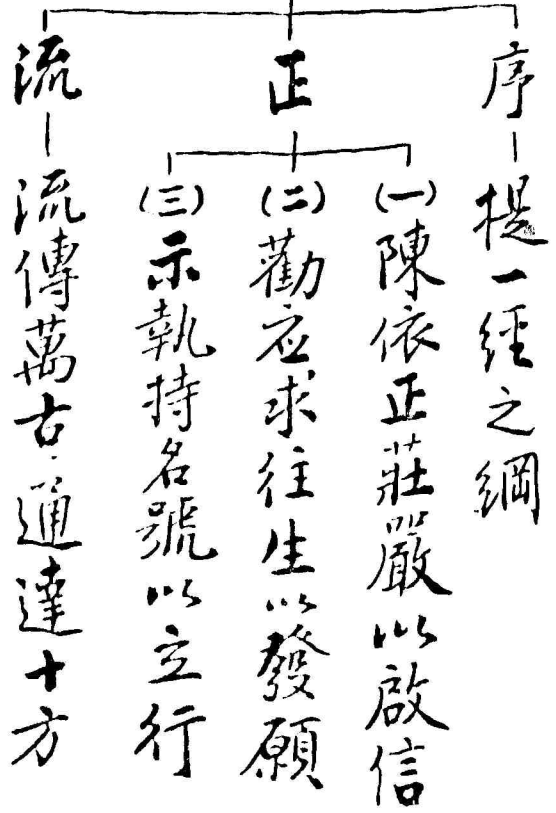 序—提一經之綱
正
(一)陳依正莊嚴以啟信
(二)勸应求往生以發願
(三)示執持名號以立行
流—流傳萬古.通達十方